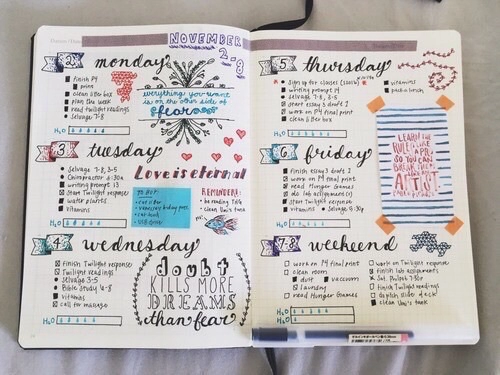 NOVEMBER
2-8
2
monday
finish P4
print
clean litter box
plan the week
read twilight readings
Selvage 7-8
H2O
everything you want
is on the other side of
fear
3
tuesday
Selvage 7-8, 3-5
Chiropractor 4:30a
writing prompt 13
start Twilight response
water plants
vitamins
H2O
Love is eternal
TO BUY:
REMINDERS:
4
wednesday
finish Twilight response
Twilight readings
Selvage 3-5
Bible Study 6-8
vitamins
call for massage
H2O
doubt
KILLS MORE
DREAMS
than fear
5
thursday
Sign up for classes
writing prompt 14
Selvage 7-8, 3-5
start essay 3 draft 2
work on P4 final print
clean litter box
vitamins
H2O
LEARN THE
RULES LIKE
A PRO
SO YOU CAN
BREAK THEM
LIKE AN
ARTIST.
PABLO PICASSO
6
friday
finish essay 3 draft 2
work on P4 final print
read Hunger Games
do lab assignment
start Twilight response
vitamins
Selvage
H2O
7-8
weekend
work on P4 final print
clean room
dust
vacuum
laundry
read Hunger Games
work on Twilight response
finish lab assignments
finish Twilight readings
clean Uni's tank
H2O